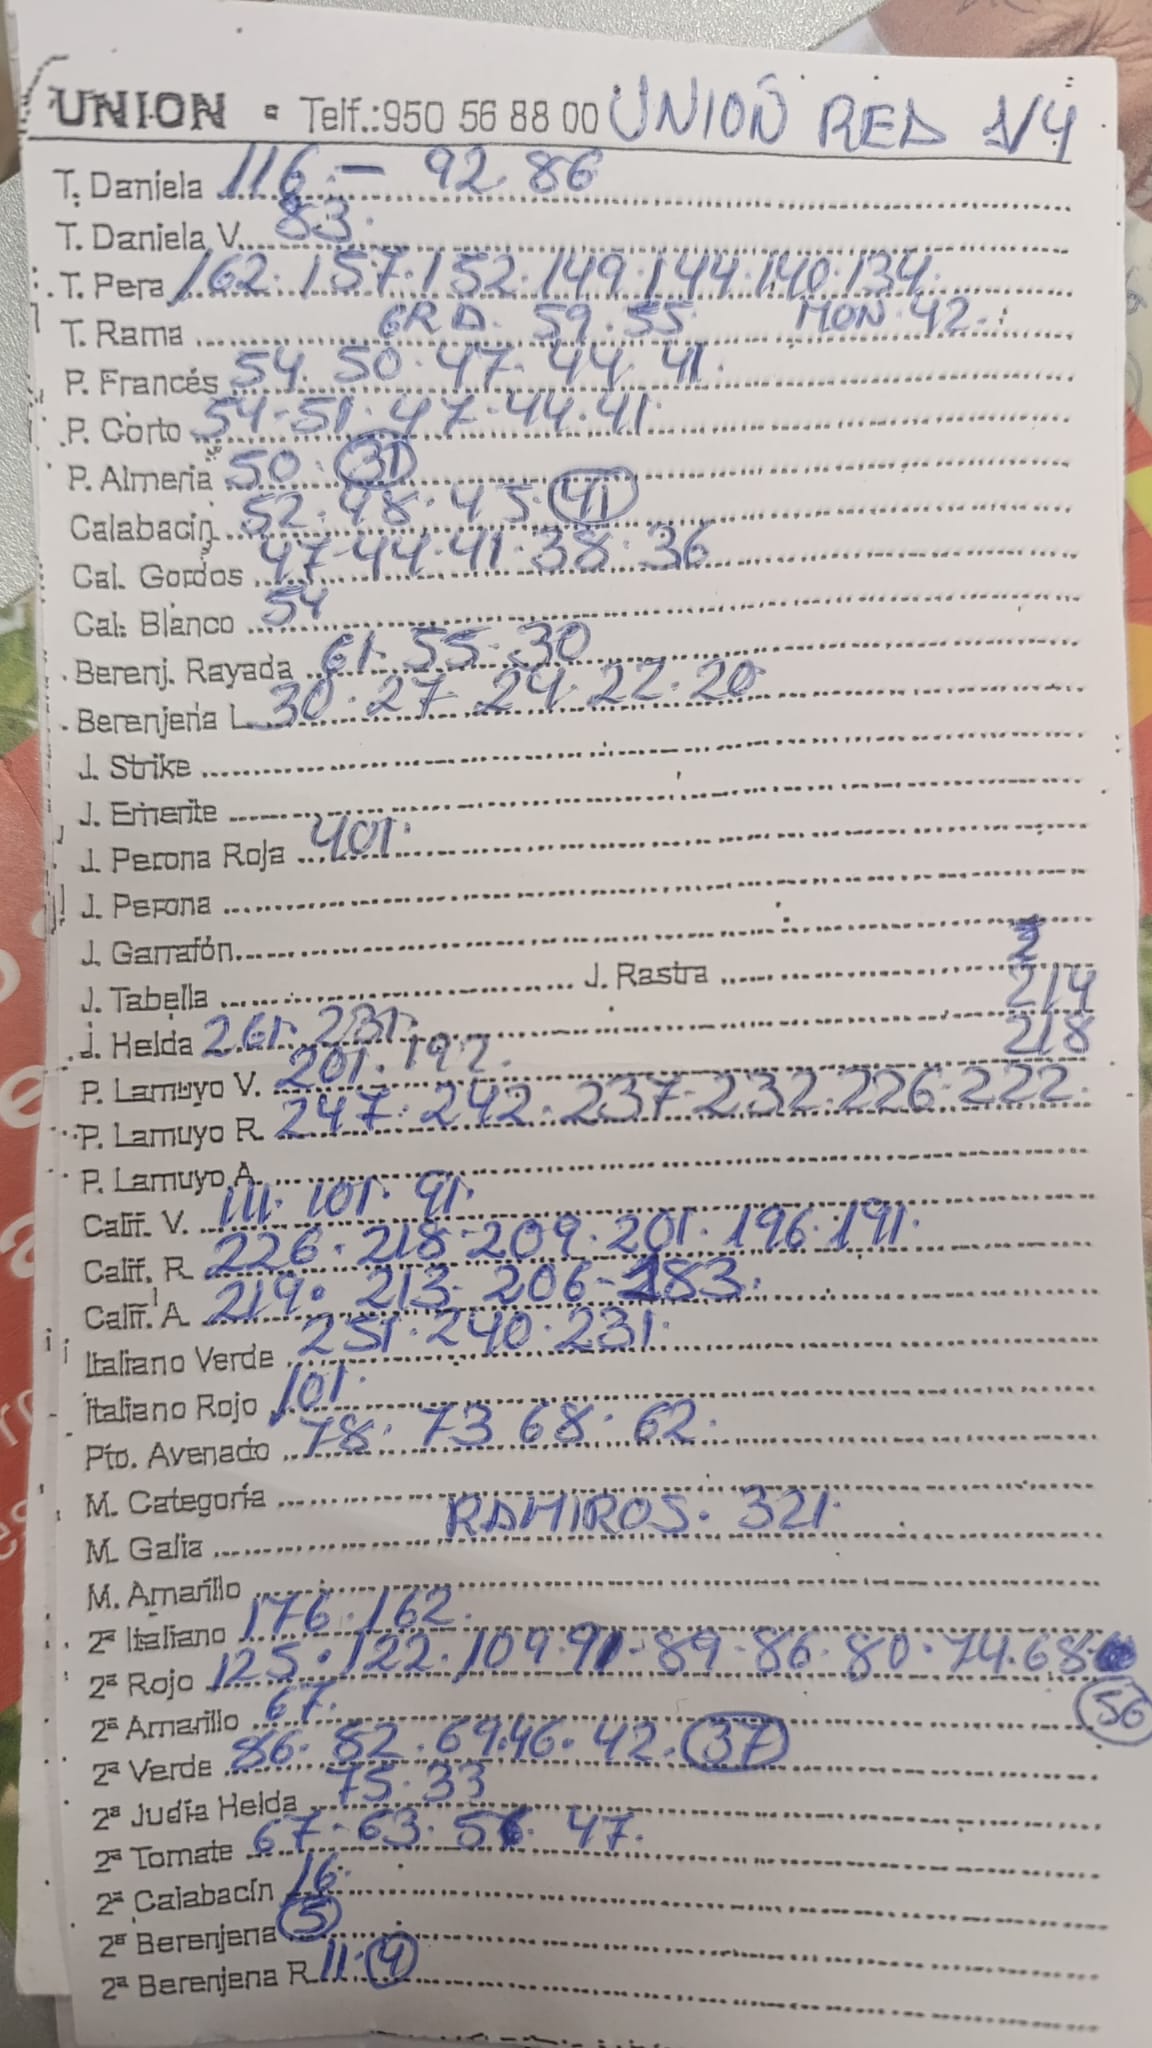 UNION - Telf.:950 56 88 00 UNION RED 1/4
T. Daniela 116 - 92. 86
T. Daniela V. 83.
T. Pera 162. 157. 152. 149. 144. 140. 134.
T. Rama GRD. 59. 55 MON. 42.
P. Francés 54. 50. 47. 44. 41.
P. Corto 54. 51. 47. 44. 41.
P. Almeria 50. 31
Calabacin 52. 48. 45. 41
Cal. Gordos 47. 44. 41. 38. 36
Cal. Blanco 54
Berenj. Rayada 61. 55. 30
Berenjena L. 30. 27. 24. 22. 20
J. Strike
J. Emerite
J. Perona Roja 401.
J. Perona
J. Garrafón
J. Tabella J. Rastra
214
J. Helda 261. 231. 218
P. Lamuyo V. 201. 192.
P. Lamuyo R. 247. 242. 237. 232. 226. 222.
P. Lamuyo A.
Calif. V. 111. 101. 91.
Calif. R. 226. 218. 209. 201. 196. 191.
Calif. A. 219. 213. 206. 183.
Italiano Verde 251. 240. 231.
Italiano Rojo 101.
Pto. Avenado 78. 73 68. 62.
M. Categoría
M. Galia RAMIROS. 321.
M. Amarillo
2ª Italiano 176. 162.
2ª Rojo 125. 122. 109. 91. 89. 86. 80. 74. 68
2ª Amarillo 67. 56
2ª Verde 86. 82. 69. 46. 42. 37
2ª Judía Helda 75. 33
2ª Tomate 67. 63. 56. 47.
2ª Calabacín 16.
2ª Berenjena 5
2ª Berenjena R. 11. 4